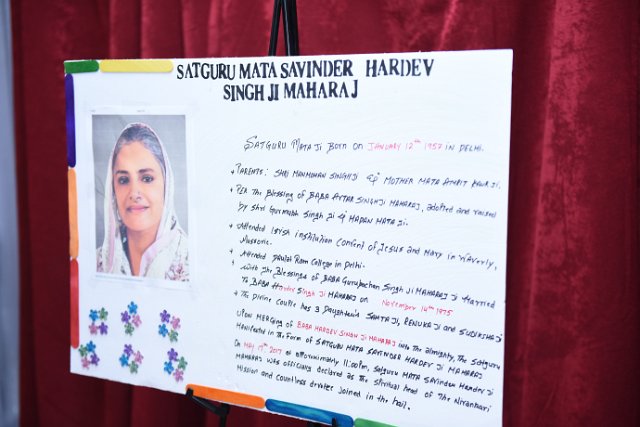 SATGURU MATA SAVINDER HARDEV
SINGH JI MAHARAJ
SATGURU MATA JI BORN ON JANUARY 12th 1957 IN DELHI.
PARENTS: SHRI MANMOHAN SINGHJI & MOTHER MATA AMRIT KAUR JI.
PER THE Blessing of BABA AVTAR SINGHJI MAHARAJ, adopted and raised
by Shri Gurmukh Singh Ji & MADAN MATA JI.
Attended Irish institution Convent of Jesus and Mary in Waverly,
Mussorie.
Attended Daulat Ram College in Delhi.
With the Blessings of BABA Gurubachan Singh Ji MAHARAJ Ji Married
To BABA Hardev Singh Ji MAHARAJ on November 14th 1975
The Divine Couple has 3 Daughters SAMTA JI, RENUKA JI and SUDIKSHA JI
UPON MERGING of BABA HARDEV SINGH JI MAHARAJ into the almighty, the Satguru
Manifested in the form of SATGURU MATA SAVINDER HARDEV JI MAHARAJ
On MAY 17th 2017 at approximately 11:00PM, Satguru Mata Savinder Hardev Ji
MAHARAJ was officially declared as the spiritual head of the Nirankari
Mission and Countless devotee joined in the hail.